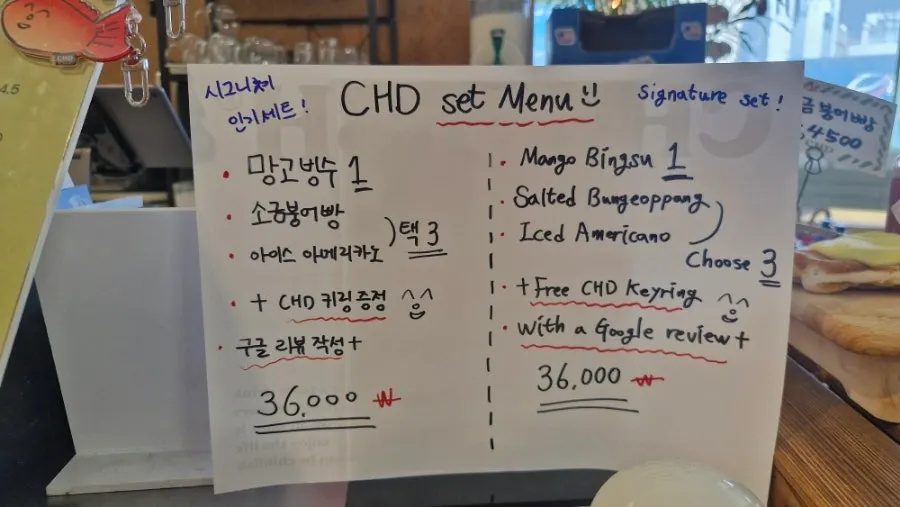 시그니처
인기세트!
CHD set Menu
Signature set!
• 망고빙수 1
• 소금붕어빵
• 아이스 아메리카노
) 택 3
• + CHD 키링 증정 ^^
• 구글 리뷰 작성 +
36,000 ₩
• Mango Bingsu 1
• Salted Bungeoppang
• Iced Americano
Choose 3
• + Free CHD Keyring ^^
• with a Google review +
36,000 ₩
금붕어빵
4500
4.5
CHD